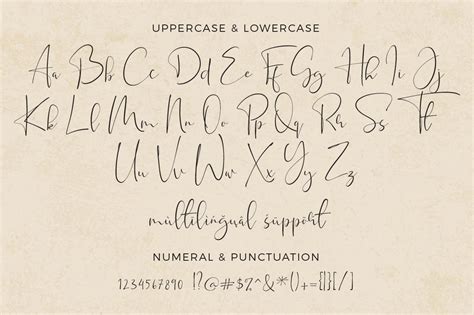 UPPERCASE & LOWERCASE
Aa Bb Cc Dd Ee Ff Gg Hh Ii Jj
Kk Ll Mm Nn Oo Pp Qq Rr Ss Tt
Uu Vv Ww Xx Yy Zz
mùltilinğuál śüppořt
NUMERAL & PUNCTUATION
1234567890 !?@#$%^&*()+={}[/]